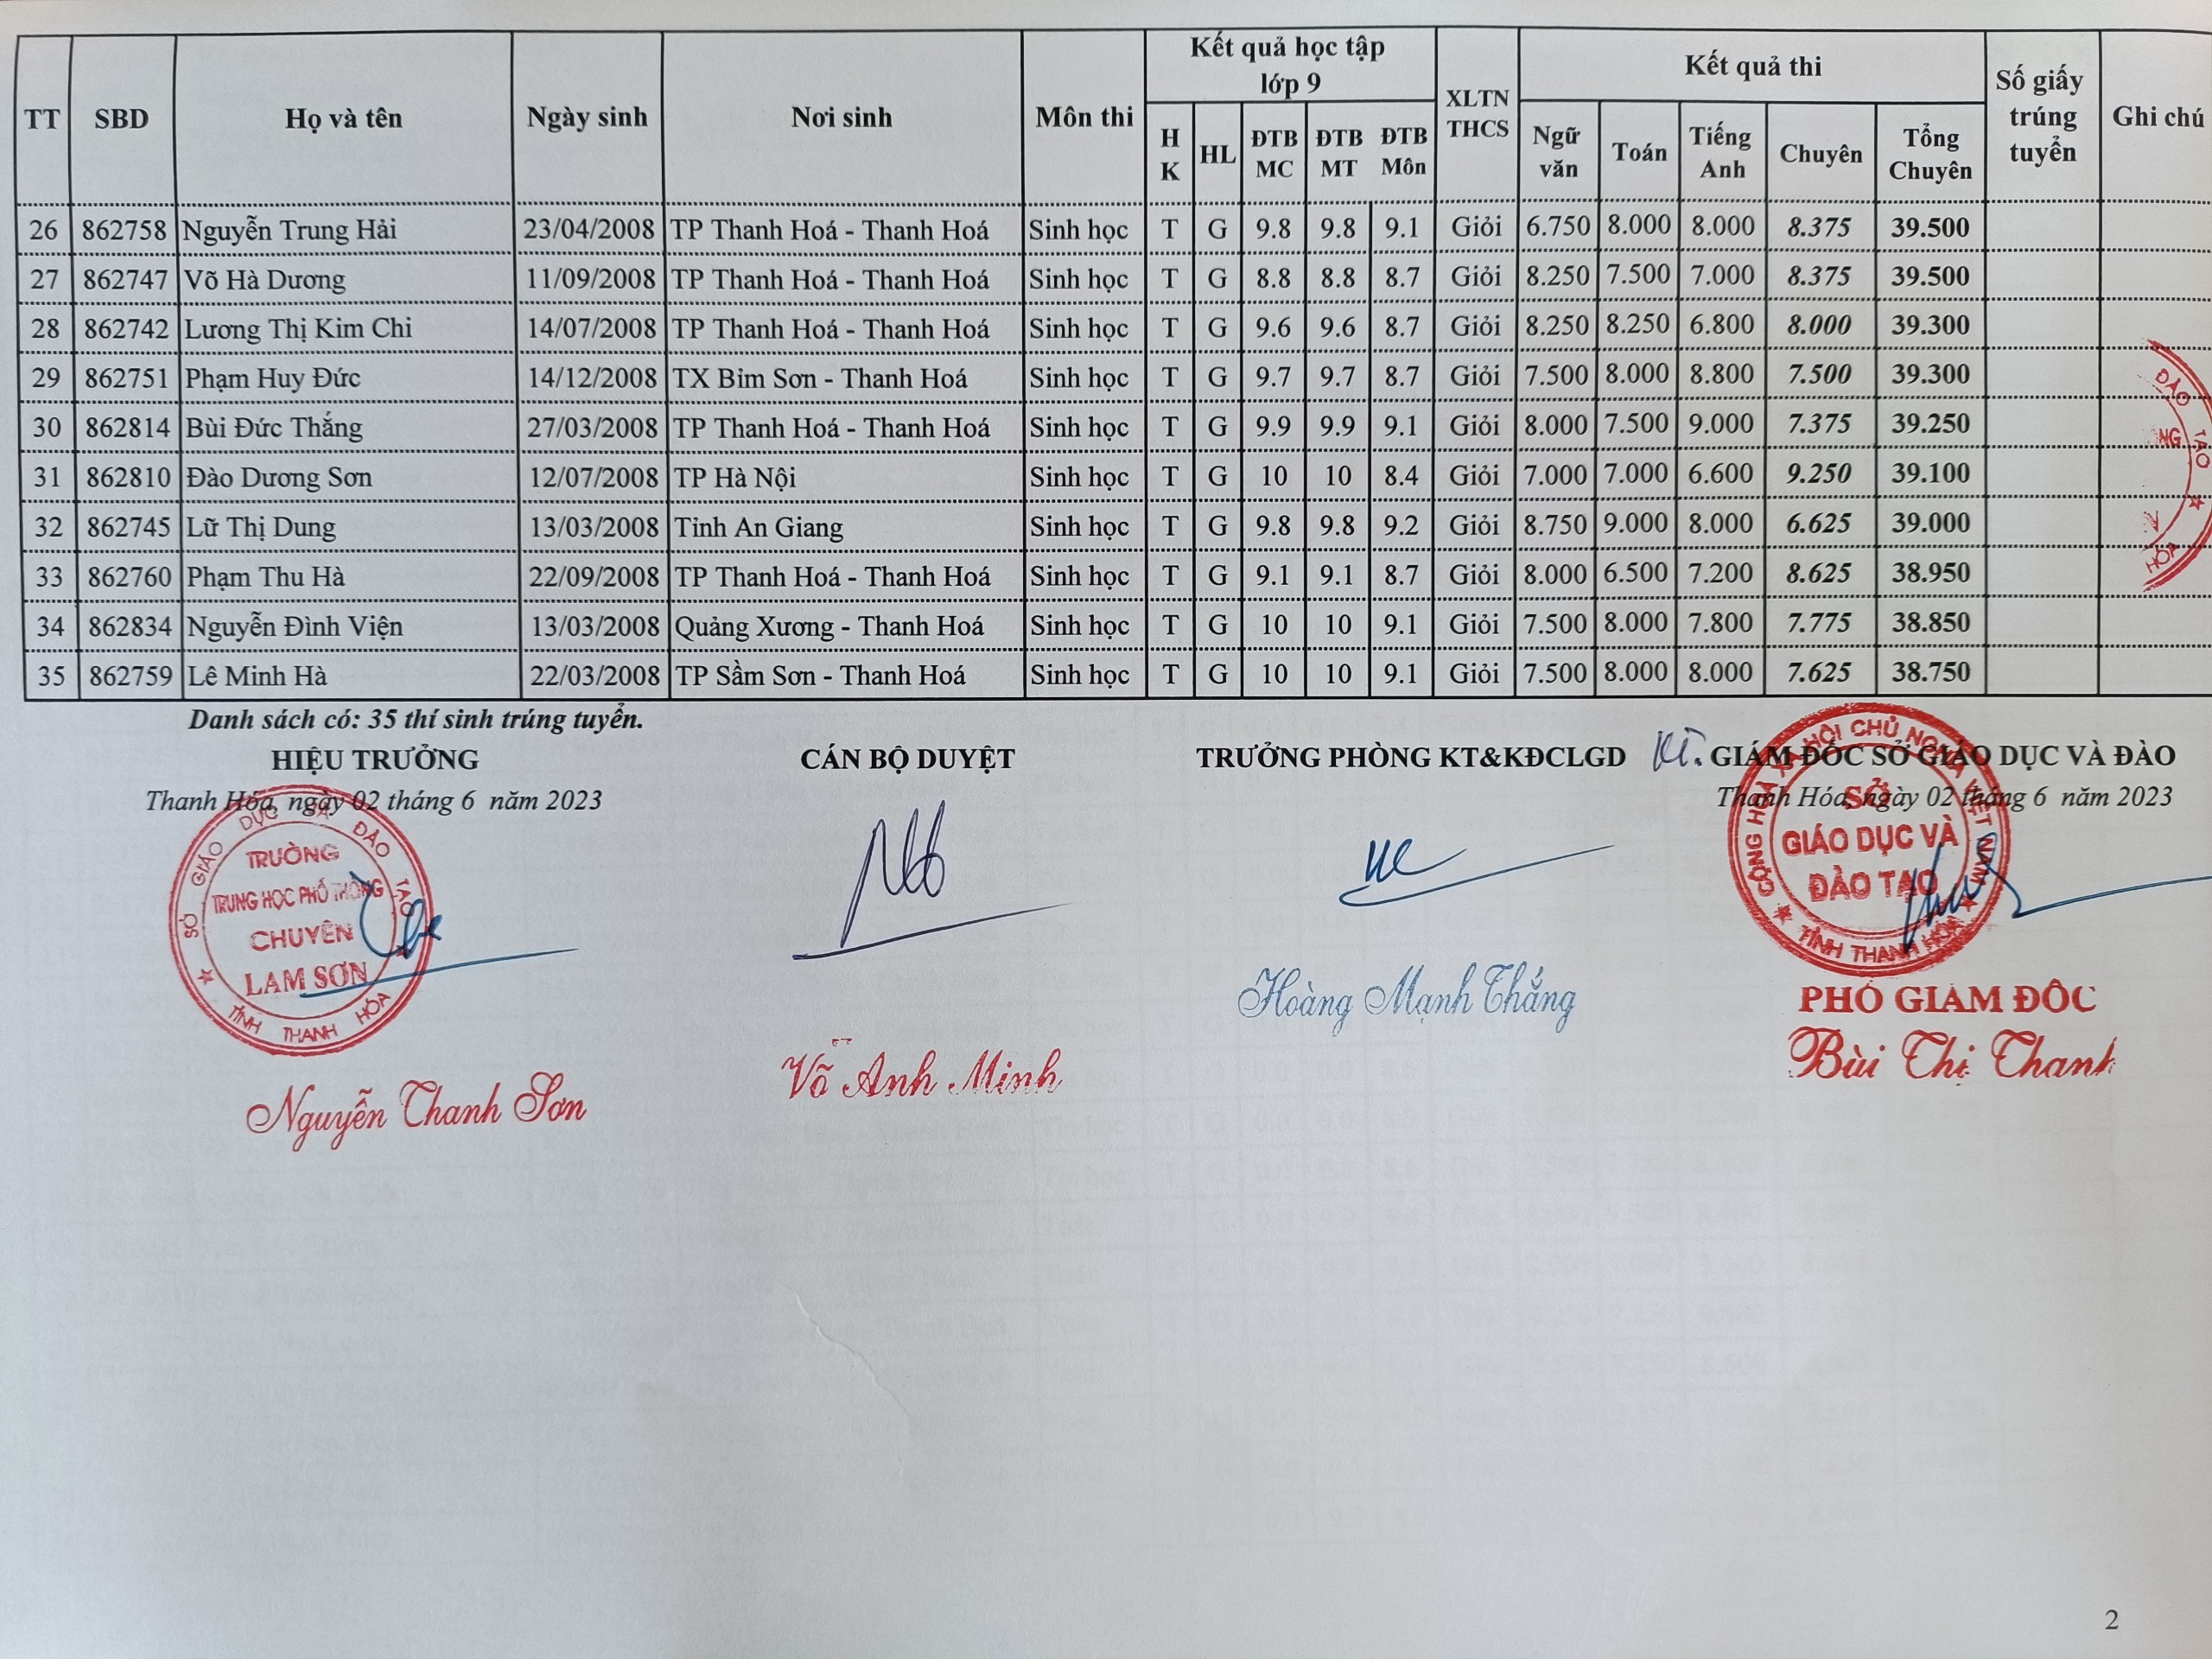 TT SBD Họ và tên Ngày sinh Nơi sinh Môn thi Kết quả học tập lớp 9 XLTN THCS Kết quả thi Số giấy trúng tuyển Ghi chú
H K HL ĐTB MC ĐTB MT ĐTB Môn Ngữ văn Toán Tiếng Anh Chuyên Tổng Chuyên
26 862758 Nguyễn Trung Hải 23/04/2008 TP Thanh Hoá - Thanh Hoá Sinh học T G 9.8 9.8 9.1 Giỏi 6.750 8.000 8.000 8.375 39.500
27 862747 Võ Hà Dương 11/09/2008 TP Thanh Hoá - Thanh Hoá Sinh học T G 8.8 8.8 8.7 Giỏi 8.250 7.500 7.000 8.375 39.500
28 862742 Lương Thị Kim Chi 14/07/2008 TP Thanh Hoá - Thanh Hoá Sinh học T G 9.6 9.6 8.7 Giỏi 8.250 8.250 6.800 8.000 39.300
29 862751 Phạm Huy Đức 14/12/2008 TX Bỉm Sơn - Thanh Hoá Sinh học T G 9.7 9.7 8.7 Giỏi 7.500 8.000 8.800 7.500 39.300
30 862814 Bùi Đức Thắng 27/03/2008 TP Thanh Hoá - Thanh Hoá Sinh học T G 9.9 9.9 9.1 Giỏi 8.000 7.500 9.000 7.375 39.250
31 862810 Đào Dương Sơn 12/07/2008 TP Hà Nội Sinh học T G 10 10 8.4 Giỏi 7.000 7.000 6.600 9.250 39.100
32 862745 Lữ Thị Dung 13/03/2008 Tỉnh An Giang Sinh học T G 9.8 9.8 9.2 Giỏi 8.750 9.000 8.000 6.625 39.000
33 862760 Phạm Thu Hà 22/09/2008 TP Thanh Hoá - Thanh Hoá Sinh học T G 9.1 9.1 8.7 Giỏi 8.000 6.500 7.200 8.625 38.950
34 862834 Nguyễn Đình Viện 13/03/2008 Quảng Xương - Thanh Hoá Sinh học T G 10 10 9.1 Giỏi 7.500 8.000 7.800 7.775 38.850
35 862759 Lê Minh Hà 22/03/2008 TP Sầm Sơn - Thanh Hoá Sinh học T G 10 10 9.1 Giỏi 7.500 8.000 8.000 7.625 38.750
ĐÀO TẠO
HÓA
Danh sách có: 35 thí sinh trúng tuyển.
HIỆU TRƯỞNG CÁN BỘ DUYỆT TRƯỞNG PHÒNG KT&KĐCLGD KT. GIÁM ĐỐC SỞ GIÁO DỤC VÀ ĐÀO
Thanh Hóa, ngày 02 tháng 6 năm 2023 Thanh Hóa, ngày 02 tháng 6 năm 2023
SỞ GIÁO DỤC VÀ ĐÀO TẠO
TRƯỜNG
TRUNG HỌC PHỔ THÔNG
CHUYÊN
LAM SƠN
TỈNH THANH HÓA
CỘNG HOÀ XÃ HỘI CHỦ NGHĨA VIỆT NAM
SỞ
GIÁO DỤC VÀ
ĐÀO TẠO
TỈNH THANH HÓA
PHÓ GIÁM ĐỐC
Nguyễn Thanh Sơn Võ Anh Minh Hoàng Mạnh Thắng Bùi Thị Thanh
2